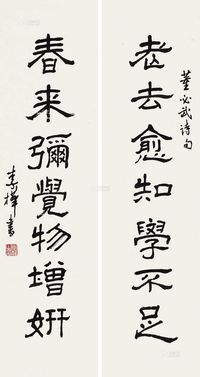 老去愈知學不足
董必武詩句
春来彌覺物增妍
李鐸書